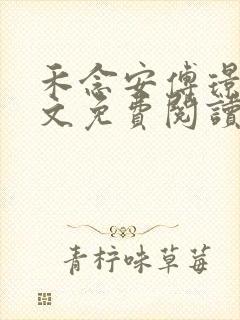 禾念安傅璟
文免費閱讀
青柠味草莓